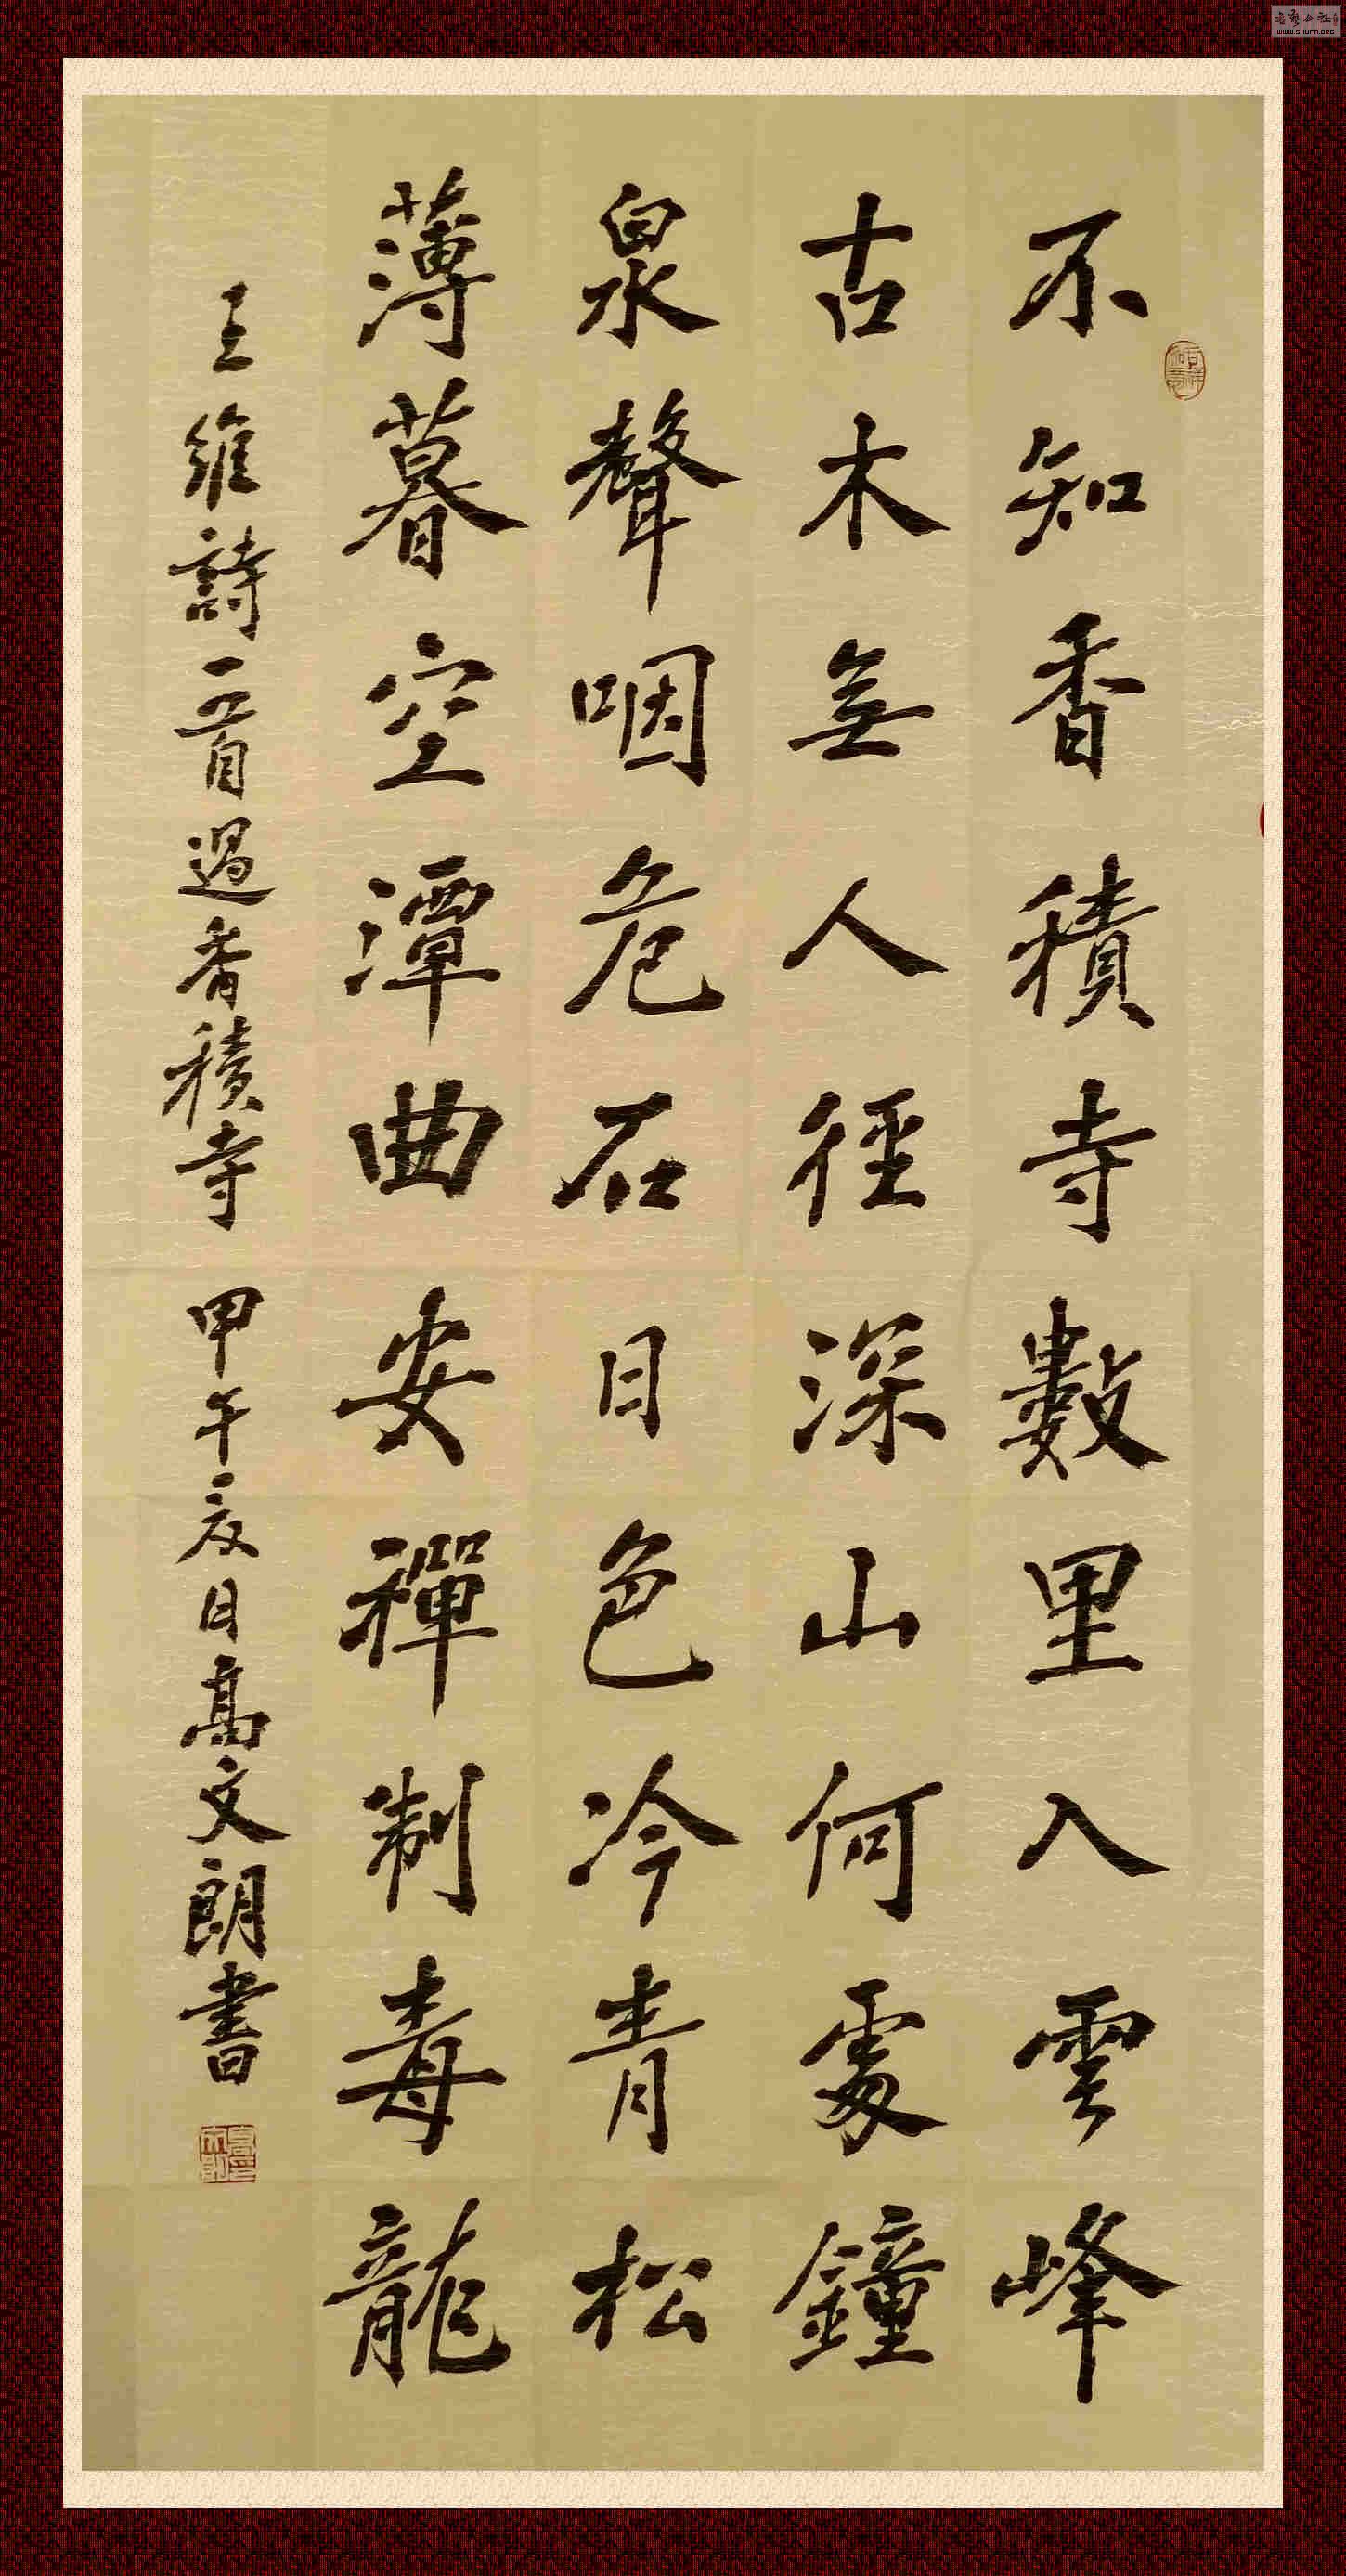 不知香積寺數里入雲峰
古木無人徑深山何處鐘
泉聲咽危石日色冷青松
薄暮空潭曲安禪制毒龍
王維詩一首過香積寺 甲午夏日高文朗書
WWW.SHUFA.ORG